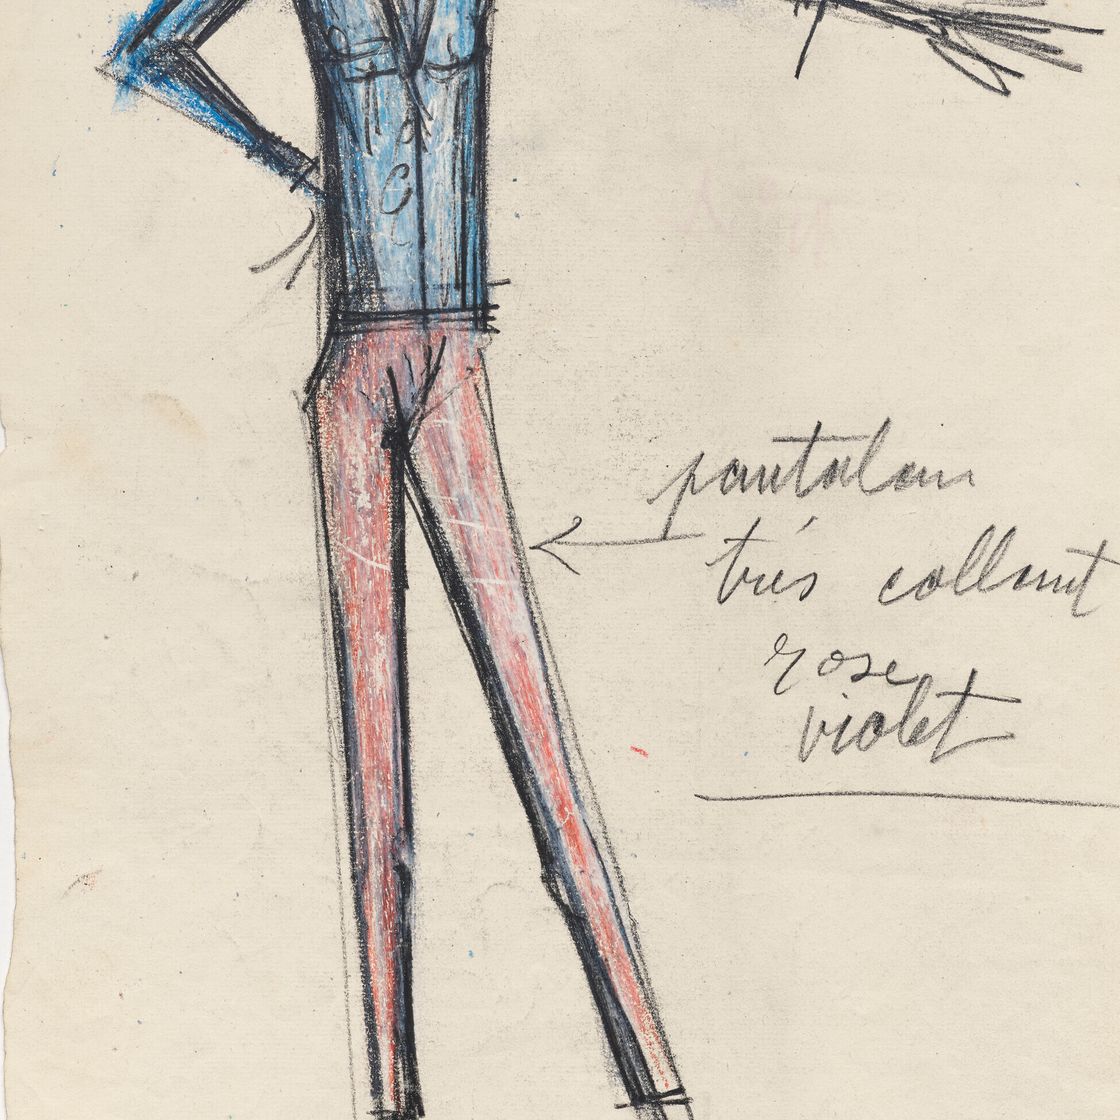 pantalon
trés collant
rose
violet